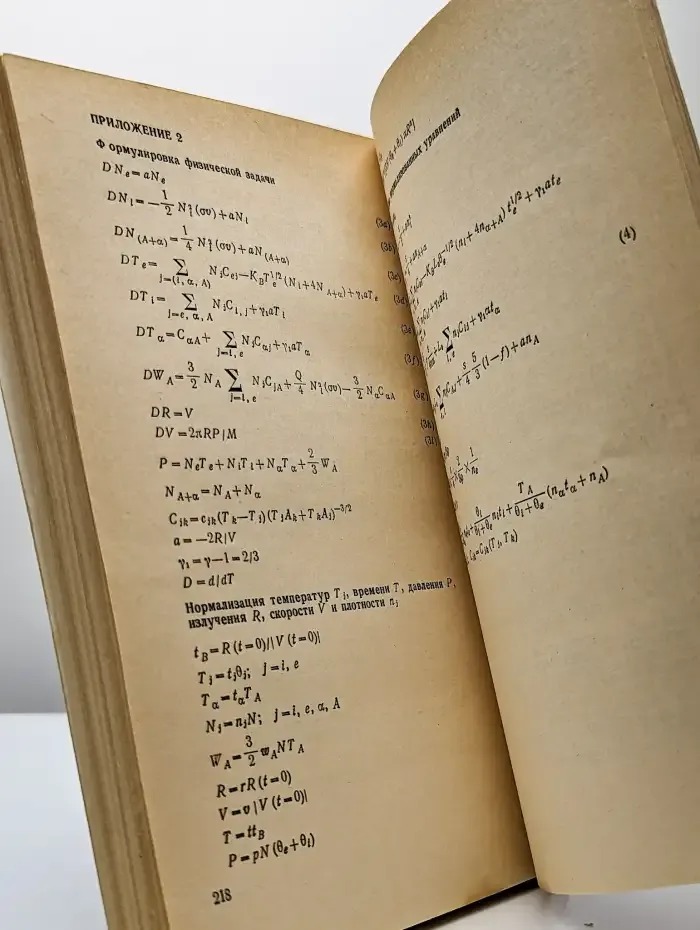 ПРИЛОЖЕНИЕ 2
Формулировка физической задачи
DNₑ=aNₑ
DNᵢ=−1/2 Nᵢ²⟨συ⟩+aNᵢ (3a)
DN₍A+α₎=1/4 Nᵢ²⟨συ⟩+aN₍A+α₎ (3b)
DTₑ= ∑ j=(i, α, A) NⱼCₑⱼ−K_B Tₑ^1/2 (Nᵢ+4N_A+α)+γ₁aTₑ (3c)
DTᵢ= ∑ j=e, α, A NⱼCᵢ,ⱼ+γ₁aTᵢ (3d)
DT_α=C_αA+ ∑ j=i, e NⱼC_αj+γ₁aT_α (3e)
DW_A=3/2 N_A ∑ j=i, e NⱼC_jA+Q/4 Nᵢ²⟨συ⟩−3/2 N_αC_αA (3f)
DR=V (3g)
DV=2πRP/M (3h)
(3i)
P=NₑTₑ+NᵢTᵢ+N_αT_α+2/3 W_A
N_A+α=N_A+N_α
C_jk=c_jk(T_k−T_j)(T_jA_k+T_kA_j)^−3/2
a=−2R/V
γ₁=γ−1=2/3
D=d/dT
Нормализация температур Tⱼ, времени T, давления P,
излучения R, скорости V и плотности nⱼ
t_B=R(t=0)/|V(t=0)|
Tⱼ=tⱼθⱼ; j=i, e
T_α=t_αT_A
Nⱼ=nⱼN; j=i, e, α, A
W_A=3/2 w_ANT_A
R=rR(t=0)
V=υ|V(t=0)|
T=tt_B
P=pN(θₑ+θᵢ)
218
уравнений
(nᵢ+4n_α+A) tₑ^1/2+γ₁atₑ
(4)
∑ i, e nⱼCᵢⱼ+γ₁at_α
5/3 (1−f)+an_A
nᵢtᵢ+ T_A/θᵢ+θₑ (n_αt_α+n_A)
(Tⱼ, T_k)